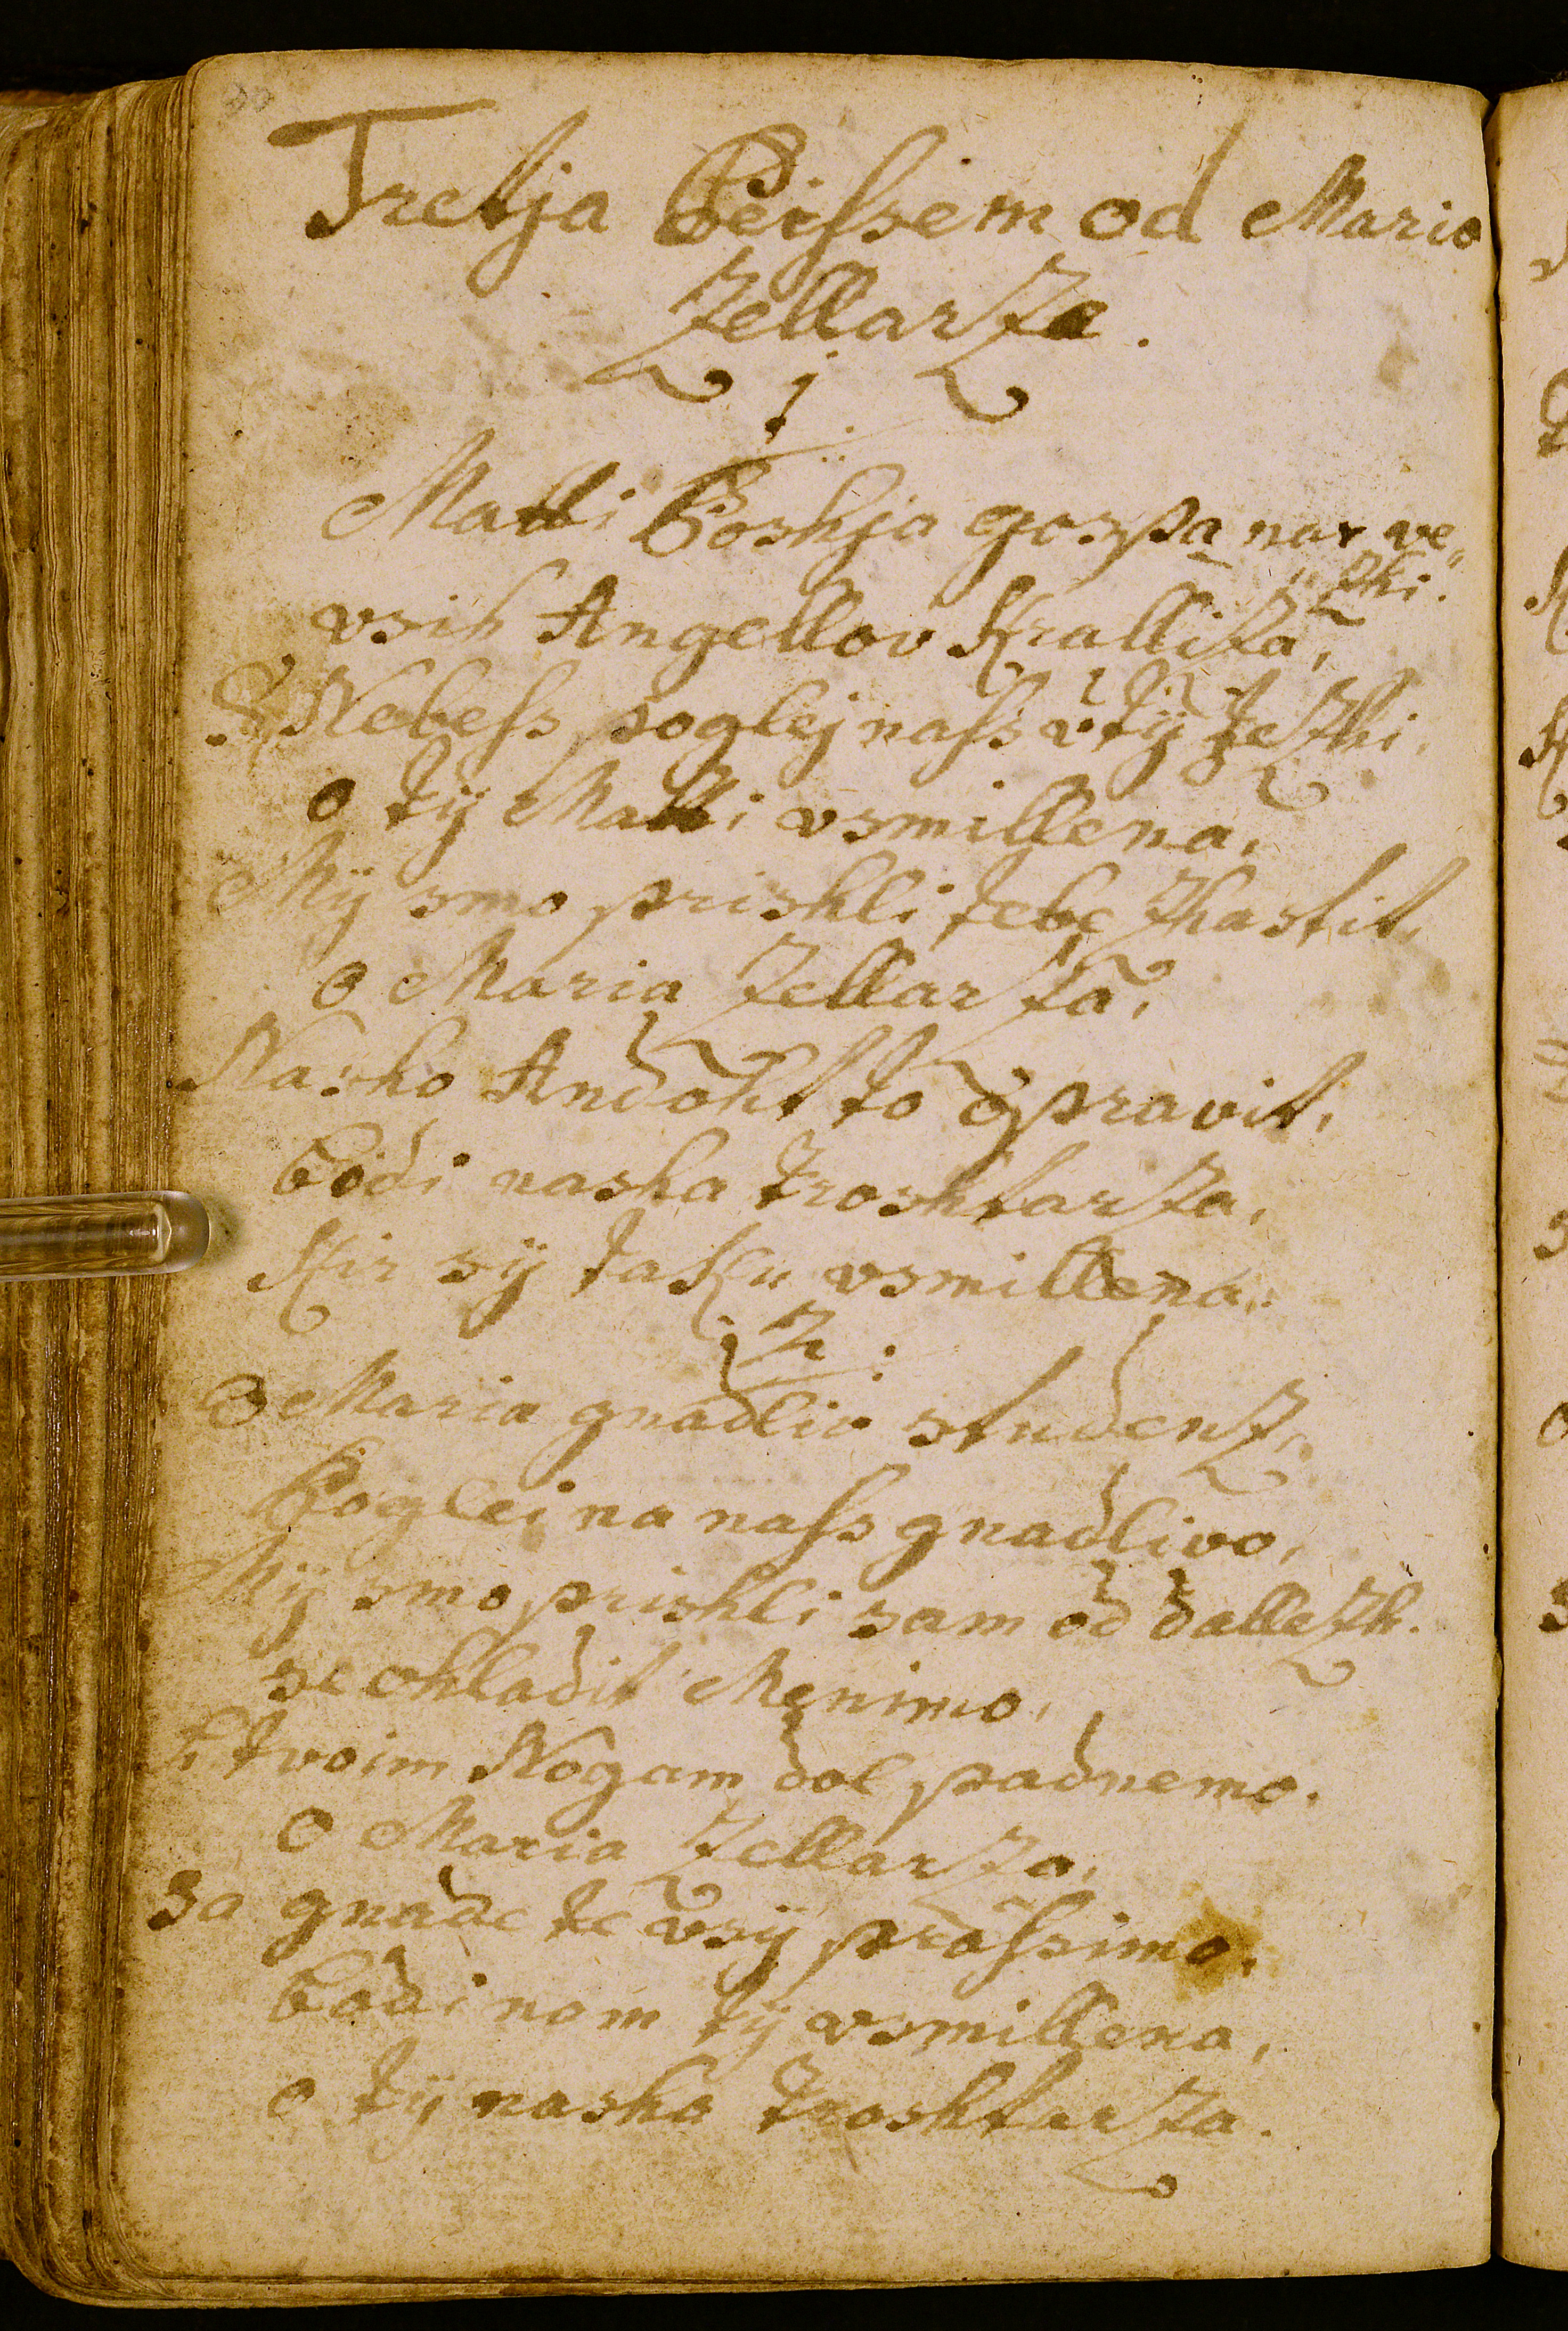 Tretja Peissem od Mario
Zellarze.
1.
Matti Boshja gospa nar ve„
„zhi.
vsih Angellov Kralliza,
S Nebess poglej nass v tÿ Jezhi.
o tÿ Matti vsmillena,
Mÿ smo prishli tebe zhastit,
o Maria Zellarza,
Nasho Andoht to opravit,
bodi nasha troshtarza,
Kir sÿ taku vsmillena.
2.
O Maria gnadliv studenz,
Poglei na nass gnadlivo,
Mÿ smo prishli sam od dallezh.
se ohladit Menimo,
k tvoim Nogam dol padnemo.
O Maria Zellarza,
sa gnade te vsÿ prossimo,
bodi nom tÿ vsmillena,
o tÿ nasha troshtarza.